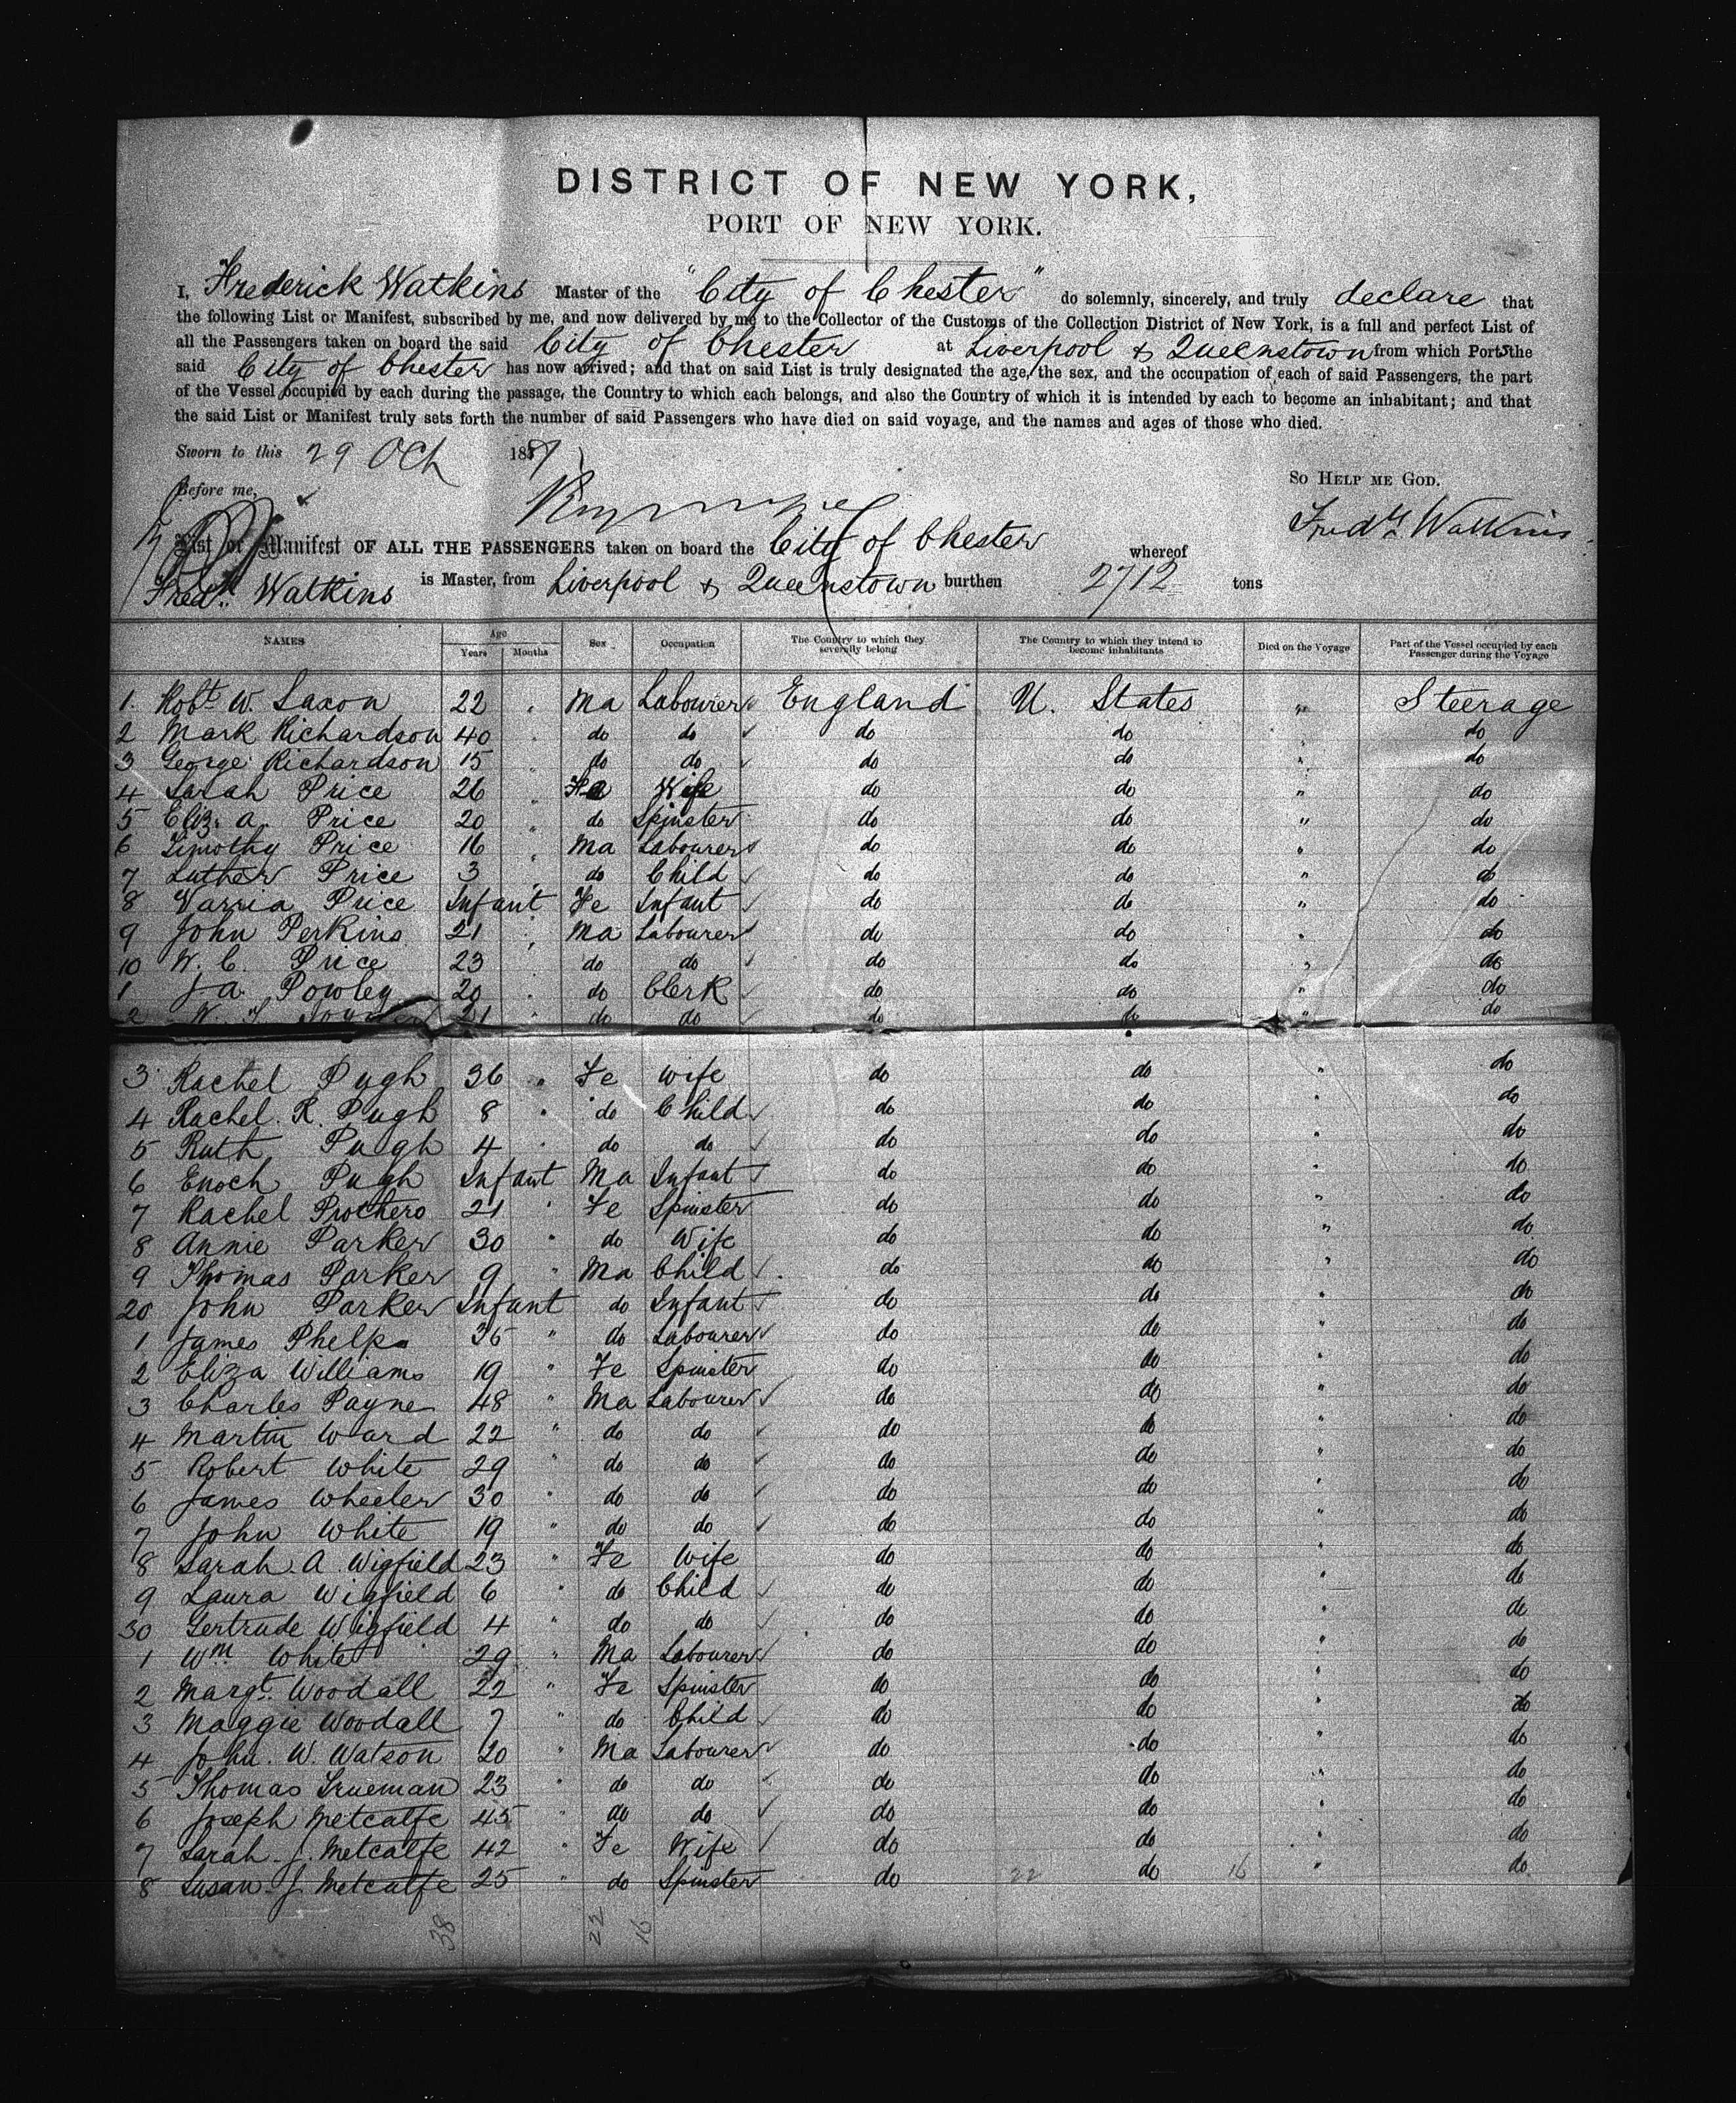 DISTRICT OF NEW YORK,
PORT OF NEW YORK.
I, Frederick Watkins Master of the "City of Chester" do solemnly, sincerely, and truly declare that
the following List or Manifest, subscribed by me, and now delivered by me to the Collector of the Customs of the Collection District of New York, is a full and perfect List of
all the Passengers taken on board the said City of Chester at Liverpool & Queenstown from which Ports the
said City of Chester has now arrived; and that on said List is truly designated the age, the sex, and the occupation of each of said Passengers, the part
of the Vessel occupied by each during the passage, the Country to which each belongs, and also the Country of which it is intended by each to become an inhabitant; and that
the said List or Manifest truly sets forth the number of said Passengers who have died on said voyage, and the names and ages of those who died.
Sworn to this 29 Oct 1887
So HELP ME GOD.
Before me,
Fredk Watkins
List or Manifest OF ALL THE PASSENGERS taken on board the City of Chester whereof
Fredk Watkins is Master, from Liverpool & Queenstown burthen 2712 tons
NAMES Age Years Months Sex Occupation The Country to which they severally belong The Country to which they intend to become inhabitants Died on the Voyage Part of the Vessel occupied by each Passenger during the Voyage
1. Robt W. Saxon 22 " Ma Labourer England U. States " Steerage
2 Mark Richardson 40 " do do do do " do
3 George Richardson 15 " do do do do " do
4 Sarah Price 26 " Fe Wife do do " do
5 Eliz. A. Price 20 " do Spinster do do " do
6 Timothy Price 16 " Ma Labourer do do " do
7 Luther Price 3 " do Child do do " do
8 Price Infant Fe Infant do do " do
9 John Perkins 21 " Ma Labourer do do " do
10 W. C. Price 23 " do do do do " do
1 J A Powley 20 " do Clerk do do " do
2 W. 21 " do do do do " do
3 Rachel Pugh 36 " Fe Wife do do " do
4 Rachel R. Pugh 8 " do Child do do " do
5 Ruth Pugh 4 " do do do do " do
6 Enoch Pugh Infant Ma Infant do do " do
7 Rachel Prothero 21 " Fe Spinster do do " do
8 Annie Parker 30 " do Wife do do " do
9 Thomas Parker 9 " Ma Child do do " do
20 John Parker Infant do Infant do do " do
1 James Phelps 35 " do Labourer do do " do
2 Eliza Williams 19 " Fe Spinster do do " do
3 Charles Payne 48 " Ma Labourer do do " do
4 Martin Ward 22 " do do do do " do
5 Robert White 29 " do do do do " do
6 James Wheeler 30 " do do do do " do
7 John White 19 " do do do do " do
8 Sarah A Wigfield 23 " Fe Wife do do " do
9 Laura Wigfield 6 " do Child do do " do
30 Gertrude Wigfield 4 " do do do do " do
1 Wm White 29 " Ma Labourer do do " do
2 Margt. Woodall 22 " Fe Spinster do do " do
3 Maggie Woodall 7 " do Child do do " do
4 John. W. Watson 20 " Ma Labourer do do " do
5 Thomas Trueman 23 " do do do do " do
6 Joseph Metcalfe 45 " do do do do " do
7 Sarah J. Metcalfe 42 " Fe Wife do do " do
8 Susan J Metcalfe 25 " do Spinster do 22 do 16 " do
38 22 16